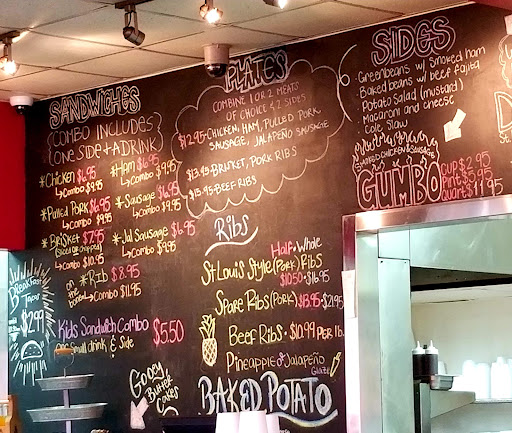 SANDWICHES
COMBO INCLUDES
ONE SIDE + A DRINK
*Chicken $6.95
↳Combo $9.95
*Ham $6.95
↳Combo 9.95
*Pulled Pork $6.95
↳Combo $9.95
*Sausage $6.95
↳Combo 9.95
*BRISKET $7.95
(sliced or chopped)
↳Combo $10.95
*Jal Sausage $6.95
↳Combo $9.95
*Rib $8.95
on the bone
↳Combo $11.95
Kids Sandwich Combo $5.50
Small drink & Side
Breakfast
Tacos
$2.99
PLATES
COMBINE 1 OR 2 MEATS
OF CHOICE & 2 SIDES
$12.95-CHICKEN, HAM, PULLED PORK
SAUSAGE, JALAPEÑO SAUSAGE
$13.95-BRISKET, PORK RIBS
$15.95-BEEF RIBS
Ribs
Half - Whole
St Louis Style (Pork) Ribs
$10.50 - $16.95
Spare Ribs (Pork) $13.95 - $21.95
Beef Ribs - $10.99 PER lb.
Pineapple or Jalapeño
Glaze
Gooey
Butter
Cakes
BAKED POTATO
SIDES
Greenbeans w/ Smoked ham
Baked beans w/ beef fajita
Potato Salad (mustard)
Macaroni and cheese
Cole Slaw
SMOKED CHICKEN & SAUSAGE
GUMBO
CUP $2.95
PINT $5.95
QUART $11.95